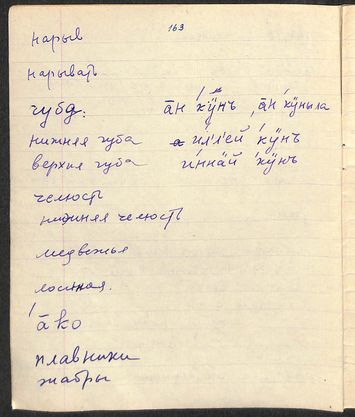 163
нарыв
нарывать
губа: а̄н кӱнъ, а̄н кӱныла
нижняя губа ил'л'ей кӱнъ
верхняя губа иннӓй кӱнъ
челюсть
нижняя челюсть
медвежья
лосиная.
а̄ко
плавники
жабры